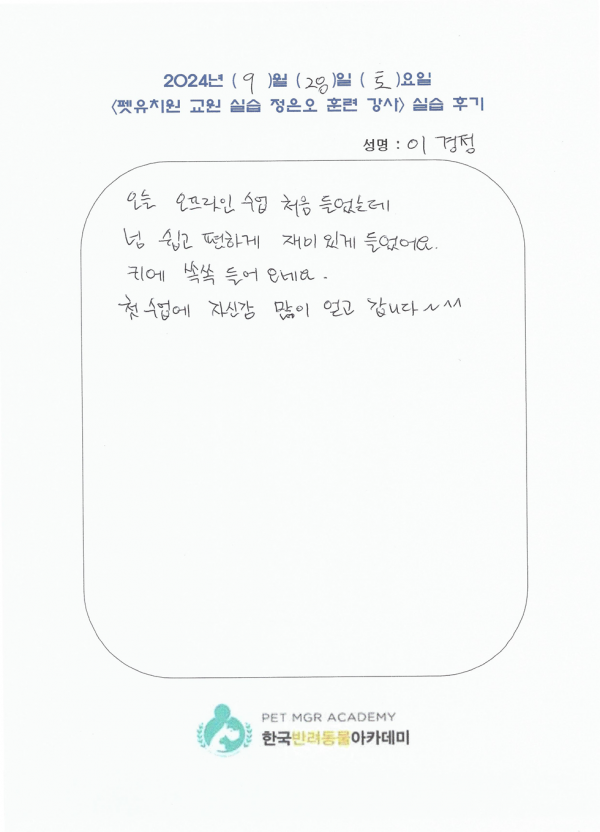 2024년 ( 9 )월 ( 28 )일 ( 토 )요일
<펫유치원 교원 실습 정은오 훈련 강사> 실습 후기
성명 : 이경정
오늘 오프라인 수업 처음 들었는데
넘 쉽고 편하게 재미있게 들었어요.
귀에 쏙쏙 들어 오네요.
첫 수업에 자신감 많이 얻고 갑니다~^^
PET MGR ACADEMY
한국반려동물아카데미